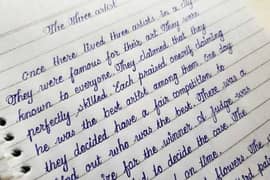 The three artist
Once there lived three artists in a city.
They were famous for their art. They were
known to everyone. They claimed that they
perfectly skilled. Each praised onearly claiming
he was the best artist among them. One day
they decided have a fair competition to
out who was the best. There was a
for the winner. A judge was
to decide the case. The
on time.
flowers. The